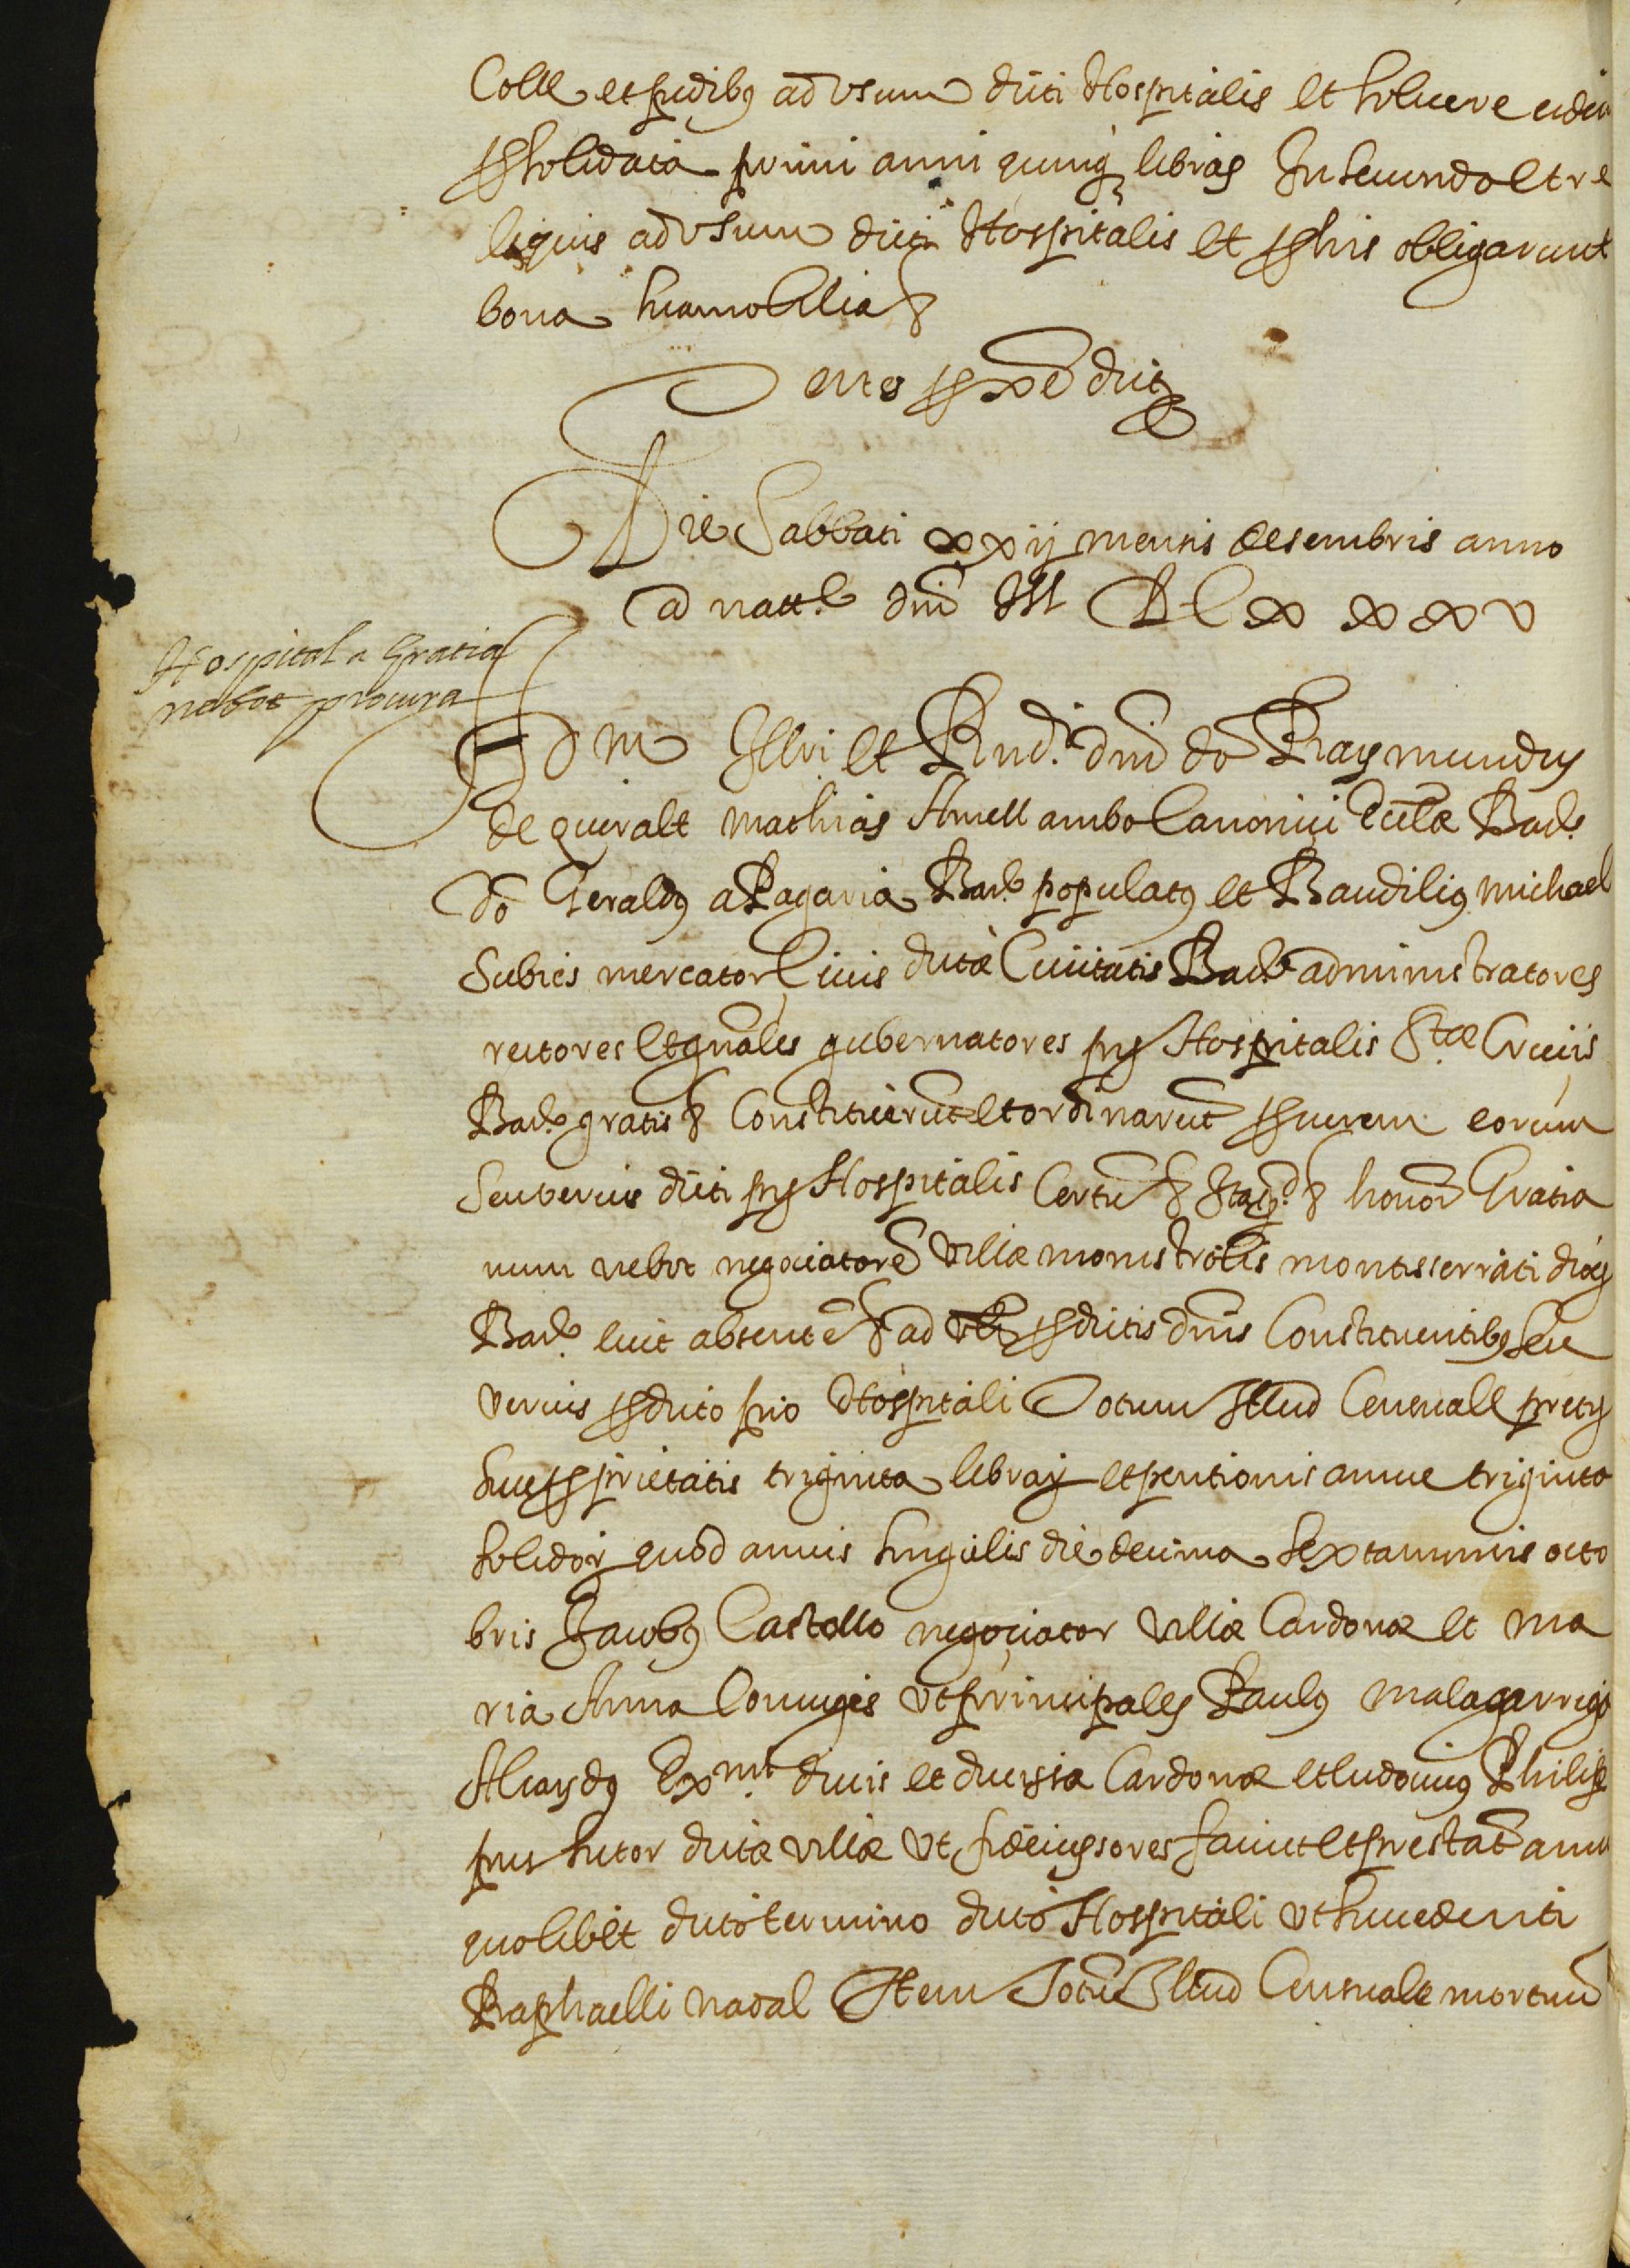 Colle et pedibus ad usum dicti Hospitalis et solvere eidem
pro solidata primi anni quinque libras In secundo et re
liquis ad usum dicti Hospitalis et pro his obligarunt
bona sua mobilia &
Testes proxime dicti
Die Sabbati xxij mensis desembris anno
a natte dni M D L xxxv
Hospital a Gratia
nebot procura
Adm Illri et Rnd. dni do Raymundus
de queralt mathias Amell ambo Canonici Eccle Barc.
do Geraldus a Pagaria Barc populatus et Baudilius michael
Subies mercator Civis dicte Civitatis Barc administratores
rectores et gnales gubernatores pij Hospitalis Stae Crucis
Barc gratis & Constituerut et ordinarut procurem eorum
seu verius dicti pij Hospitalis Certu & Itaq. & honor Gratia
num nebot negociatore villae monistrolis montisserrati dioc
Barc licet absente & ad pro dictis dnis Constituentibus seu
verius pro dicto pio Hospitali Totum Illud Censuall pretij
sue proprietatis triginta librar et pentionis annue triginta
solidor quod annis singulis die decima sexta mensis octo
bris Jacobus Castello negociator villae Cardonae et ma
ria Anna Coniuges ut principales Paulus malagarriga
Alcaydus Exmi ducis et ducissa Cardonae et ludovicus Philip
pus sutor dictae villae ut fideiussores faciut et prestat anno
quolibet dicto termino dicto Hospitali ut succedenti
Raphaelli nadal Item Totu Illud Censuale mortuu